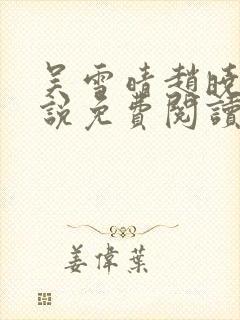 吴雪晴趙曉
說免費閱讀
姜偉葉